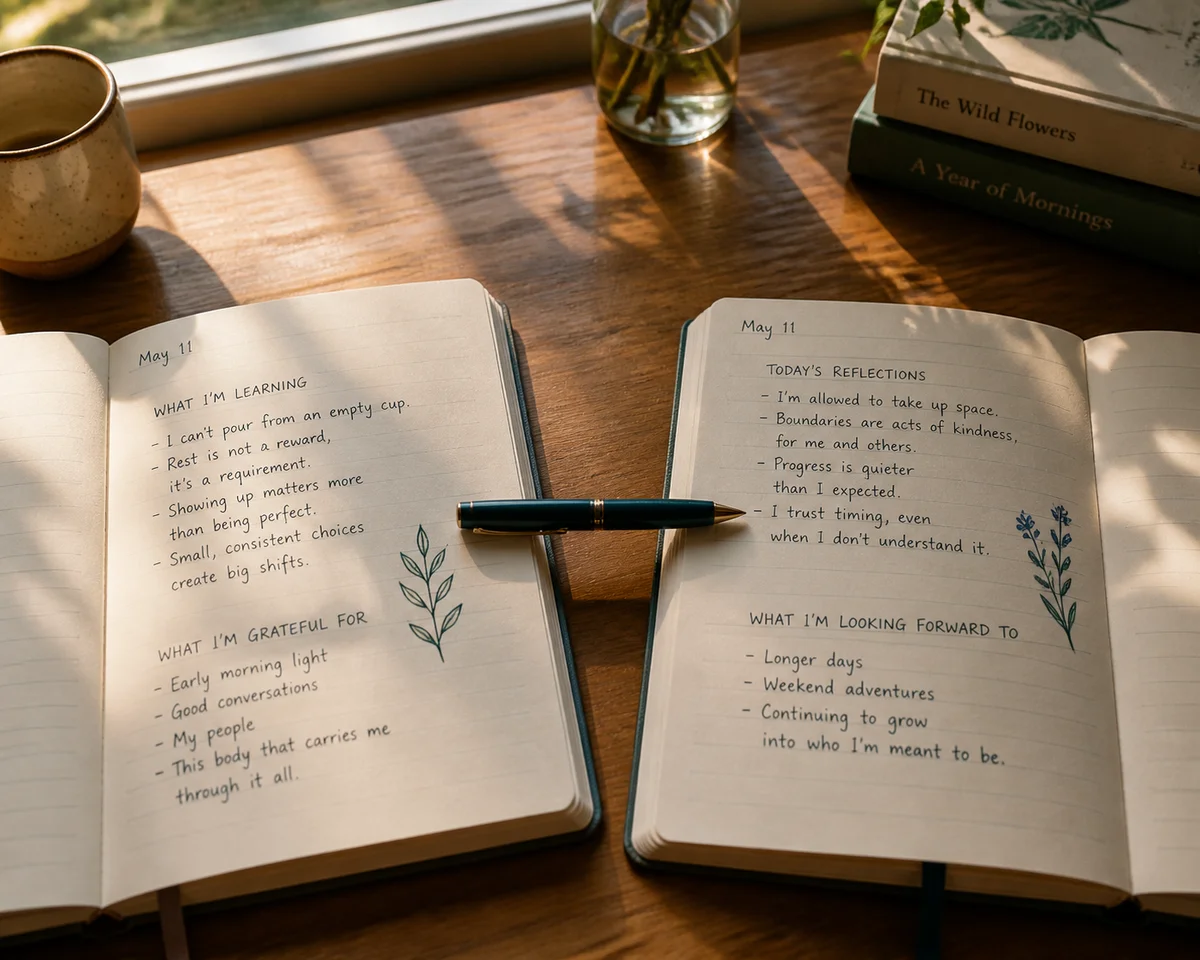 The Wild Flowers
A Year of Mornings
May 11
WHAT I'M LEARNING
- I can't pour from an empty cup.
- Rest is not a reward,
it's a requirement.
- Showing up matters more
than being perfect.
- Small, consistent choices
create big shifts.
WHAT I'M GRATEFUL FOR
- Early morning light
- Good conversations
- My people
- This body that carries me
through it all.
May 11
TODAY'S REFLECTIONS
- I'm allowed to take up space.
- Boundaries are acts of kindness,
for me and others.
- Progress is quieter
than I expected.
- I trust timing, even
when I don't understand it.
WHAT I'M LOOKING FORWARD TO
- Longer days
- Weekend adventures
- Continuing to grow
into who I'm meant to be.